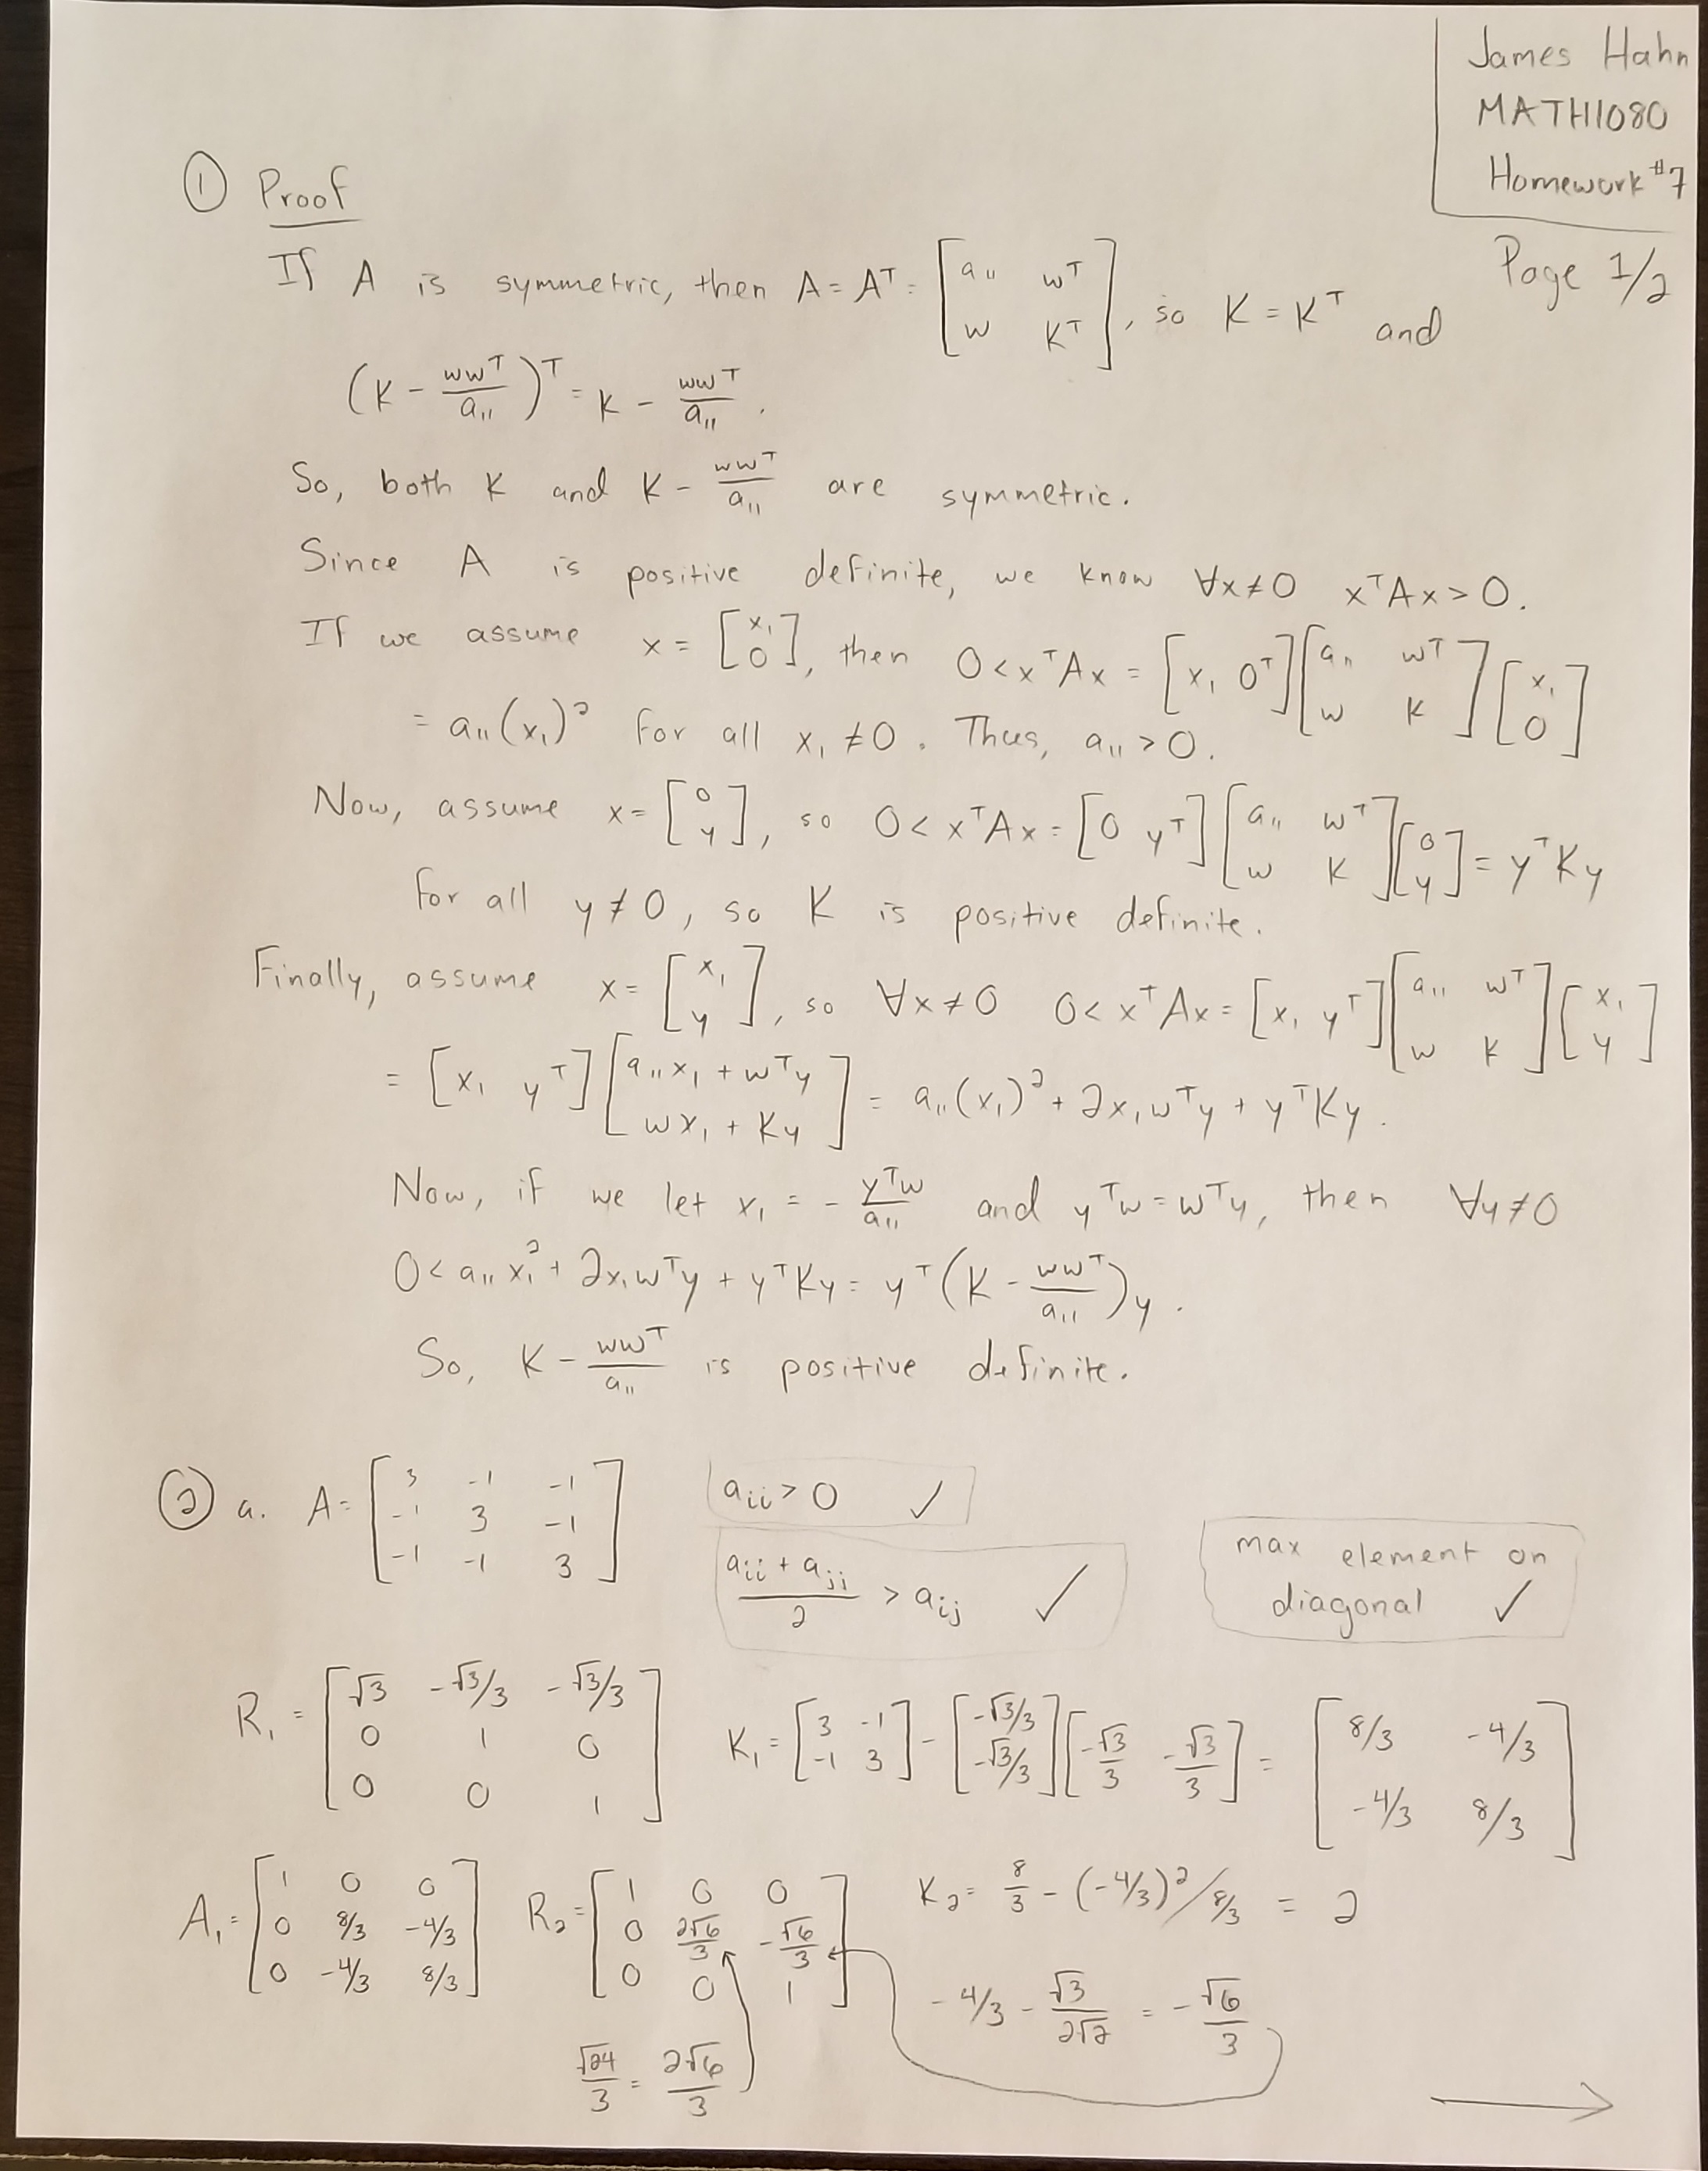 James Hahn
MATH1080
Homework #7
Page 1/2
① Proof
If A is symmetric, then A = Aᵀ = [a₁₁ wᵀ; w Kᵀ], so K = Kᵀ and
(K - wwᵀ/a₁₁)ᵀ = K - wwᵀ/a₁₁.
So, both K and K - wwᵀ/a₁₁ are symmetric.
Since A is positive definite, we know ∀x≠0 xᵀAx > 0.
If we assume x = [x₁; 0], then 0 < xᵀAx = [x₁ 0ᵀ][a₁₁ wᵀ; w K][x₁; 0]
= a₁₁(x₁)² for all x₁ ≠ 0. Thus, a₁₁ > 0.
Now, assume x = [0; y], so 0 < xᵀAx = [0 yᵀ][a₁₁ wᵀ; w K][0; y] = yᵀKy
for all y ≠ 0, so K is positive definite.
Finally, assume x = [x₁; y], so ∀x≠0 0 < xᵀAx = [x₁ yᵀ][a₁₁ wᵀ; w K][x₁; y]
= [x₁ yᵀ][a₁₁x₁ + wᵀy; wx₁ + Ky] = a₁₁(x₁)² + 2x₁wᵀy + yᵀKy.
Now, if we let x₁ = - yᵀw/a₁₁ and yᵀw = wᵀy, then ∀y≠0
0 < a₁₁x₁² + 2x₁wᵀy + yᵀKy = yᵀ(K - wwᵀ/a₁₁)y.
So, K - wwᵀ/a₁₁ is positive definite.
② a. A = [3 -1 -1; -1 3 -1; -1 -1 3]
aᵢᵢ > 0 ✓
(aᵢᵢ + aⱼⱼ)/2 > aᵢⱼ ✓
max element on
diagonal ✓
R₁ = [√3 -√3/3 -√3/3; 0 1 0; 0 0 1] K₁ = [3 -1; -1 3] - [-√3/3; -√3/3][-√3/3 -√3/3] = [8/3 -4/3; -4/3 8/3]
A₁ = [1 0 0; 0 8/3 -4/3; 0 -4/3 8/3] R₂ = [1 0 0; 0 2√6/3 -√6/3; 0 0 1] K₂ = 8/3 - (-4/3)²/8/3 = 2
-4/3 - √3/2√2 = -√6/3
√24/3 = 2√6/3
→